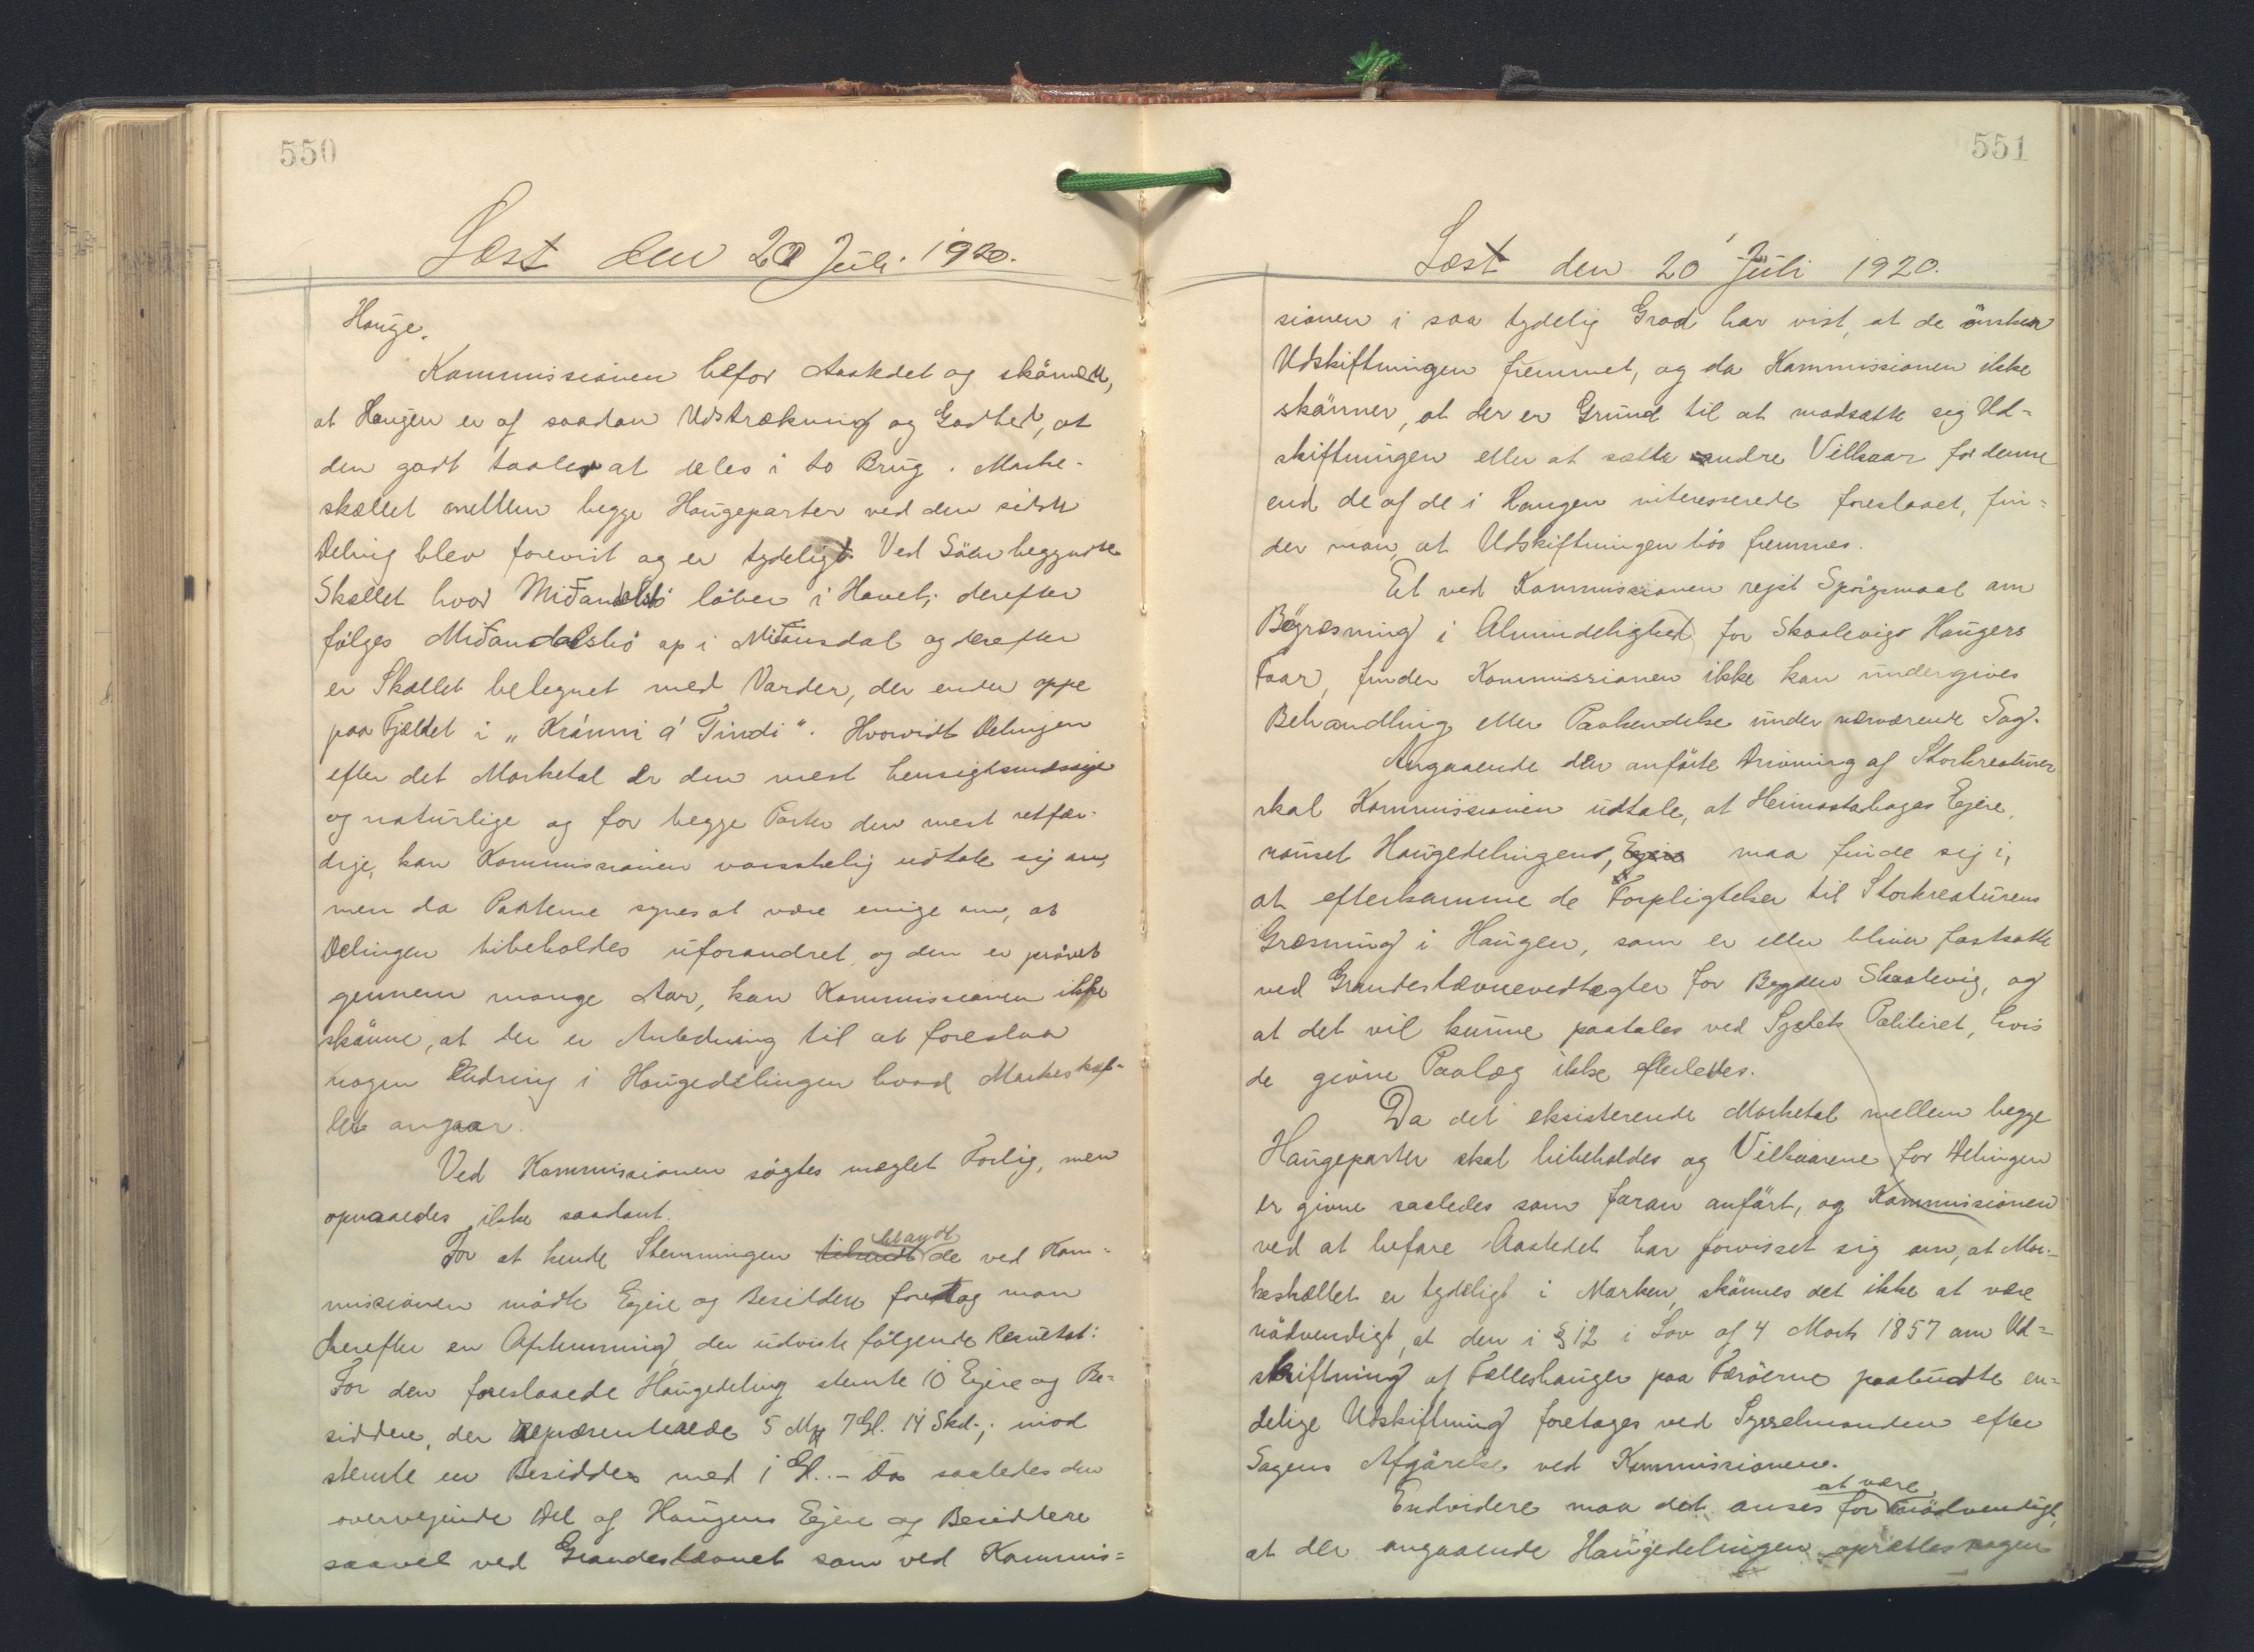 550
Læst den 20 Juli 1920.
Hauge.
Kommissionen befor Aastedet og skönner,
at Haugen er af saadan Udstrækning og Godhed, at
den godt taaler at deles i to Brug. Marke-
skællet mellem begge Haugeparter ved den sidste
Deling blev forevist og er tydeligt. Ved Söen begyndte
Skællet hvor Miðandalsá löber i Havet; derefter
fölges Miðandalsá op i Miðansdal og derefter
er Skællet betegnet med Varder, der ender oppe
paa Fjældet i „Kránni á Tindi". Hvorvidt Delingen
efter det Marketal er den mest hensigtsmæssige
og naturlige og for begge Parter den mest retfær-
dige, kan Kommissionen vanskelig udtale sig om,
men da Parterne synes at være enige om, at
Delingen bibeholdes uforandret, og den er prövet
gennem mange Aar, kan Kommissionen ikke
skönne, at der er Anledning til at foreslaa
nogen Ændring i Haugedelingen hvad Markeskæl-
let angaar.
Ved Kommissionen sögtes mæglet Forlig, men
opnaaedes ikke saadant.
For at kende Stemningen blandt de ved Kom-
missionen mödte Ejere og Besiddere foretog man
derefter en Afstemning, der udviste fölgende Resultat:
For den foreslaaede Haugedeling stemte 10 Ejere og Be-
siddere, der repræsenterede 5 Mk 7 Gl. 14 Skd.; mod
stemte en Besidder med 1 Gl. - Da saaledes den
overvejende Del af Haugens Ejere og Besiddere
saavel ved Grandestævnet som ved Kommis=
551
Læst den 20 Juli 1920.
sionen i saa tydelig Grad har vist, at de önsker
Udskiftningen fremmet, og da Kommissionen ikke
skönner, at der er Grund til at modsætte sig Ud=
skiftningen eller at sætte andre Vilkaar for denne
end de af de i Haugen interesserede foreslaaet, fin=
der man, at Udskiftningen bör fremmes.
Et ved Kommissionen rejst Spörgsmaal om
Bögræsning i Almindelighed for Skaalevigs Haugers
Faar, finder Kommissionen ikke kan undergives
Behandling eller Paakendelse under nærværende Sag.
Angaaende den anförte Drivning af Storkreaturer
skal Kommissionen udtale, at Heimastahages Ejere,
uanset Haugedelingens, Ejere maa finde sig i,
at efterkomme de Forpligtelser til Storkreaturens
Græsning i Haugen, som er eller bliver fastsatte
ved Grandestævnevedtægter for Bygden Skaalevig, og
at det vil kunne paatales ved Sysslets Politiret, hvis
de givne Paalæg ikke efterleves.
Da det eksisterende Marketal mellem begge
Haugeparter skal bibeholdes og Vilkaarene for Delingen
er givne saaledes som foran anfört, og Kommissionen
ved at befare Aastedet har forvisset sig om, at Mar-
keskællet er tydeligt i Marken, skönnes det ikke at være
nödvendigt, at den i § 12 i Lov af 4 Marts 1857 om Ud=
skiftning af Fælleshauger paa Færöerne paabudte en=
delige Udskiftning foretages ved Sysselmanden efter
Sagens Afgörelse ved Kommissionen.
Endvidere maa det anses for at være nödvendigt,
at der angaaende Haugedelingen oprettes nogen